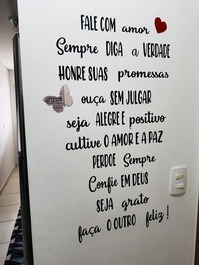 FALE COM amor
Sempre DIGA a VERDADE
HONRE SUAS promessas
ouça SEM JULGAR
seja ALEGRE e positivo
cultive O AMOR E A PAZ
PERDOE Sempre
Confie EM DEUS
SEJA grato
faça O OUTRO feliz!